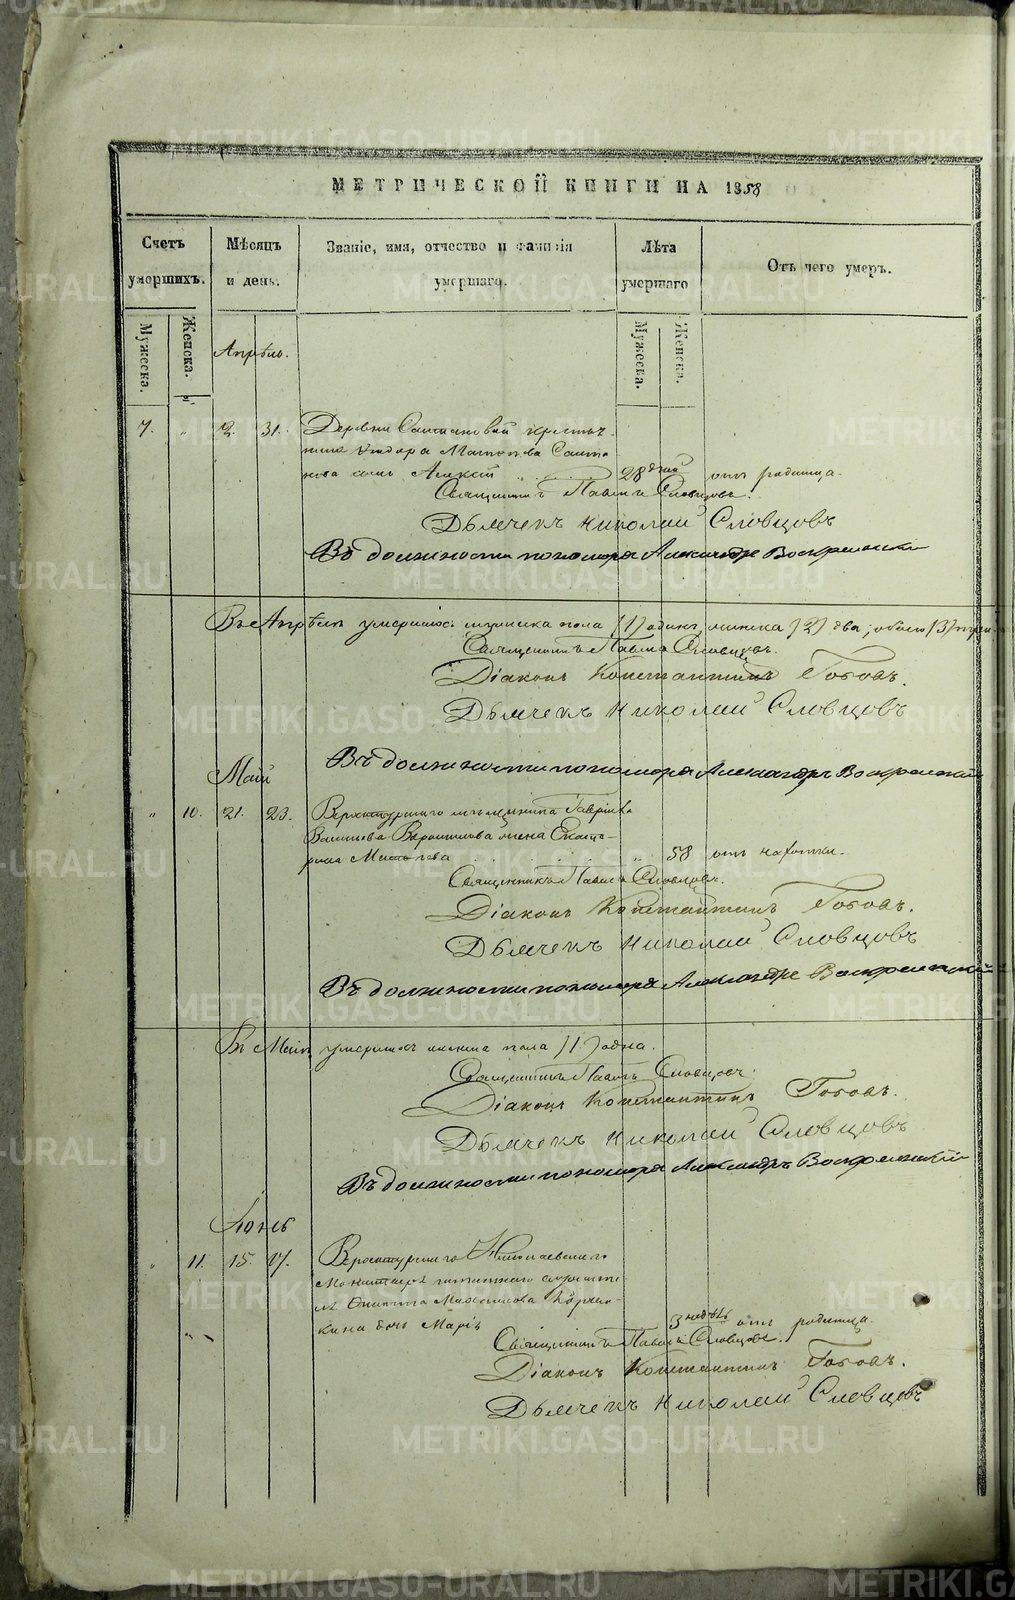 МЕТРИЧЕСКОЙ КНИГИ НА 1858
Счетъ умершихъ.
Мѣсяцъ и день.
Званіе, имя, отчество и фамилія умершаго.
Лѣта умершаго
Отъ чего умеръ.
Мужеска.
Женска.
Мужеска.
Женска.
Апрѣль.
7. " 2. 31. Деревни
сынъ Алексѣй 28 дней отъ родимца.
Священникъ Павелъ Словцовъ.
Дьячекъ Николай Словцовъ
Въ должности пономаря Александръ Воскресенскій
Въ Апрѣлѣ умершихъ мужеска пола (1) одинъ, женска (2) два, обоего (3) три.
Священникъ Павелъ Словцовъ.
Діаконъ Константинъ Топовъ.
Дьячекъ Николай Словцовъ
Въ должности пономаря Александръ Воскресенскій
Май
" 10. 21. 23. Верхотурскаго мѣщанина Гавріила
жена Екате-
рина 58 отъ чахотки.
Священникъ Павелъ Словцовъ.
Діаконъ Константинъ Топовъ.
Дьячекъ Николай Словцовъ
Въ должности пономаря Александръ Воскресенскій
Въ Маѣ умершихъ женска пола (1) одна.
Священникъ Павелъ Словцовъ.
Діаконъ Константинъ Топовъ.
Дьячекъ Николай Словцовъ
Въ должности пономаря Александръ Воскресенскій
Іюнь
" 11. 15. 17. Верхотурскаго Николаевскаго
Монастыря штатнаго служите-
ля
кина дочь Марія 3 недѣль отъ родимца.
Священникъ Павелъ Словцовъ.
Діаконъ Константинъ Топовъ.
Дьячекъ Николай Словцовъ
METRIKI.GASO-URAL.RU